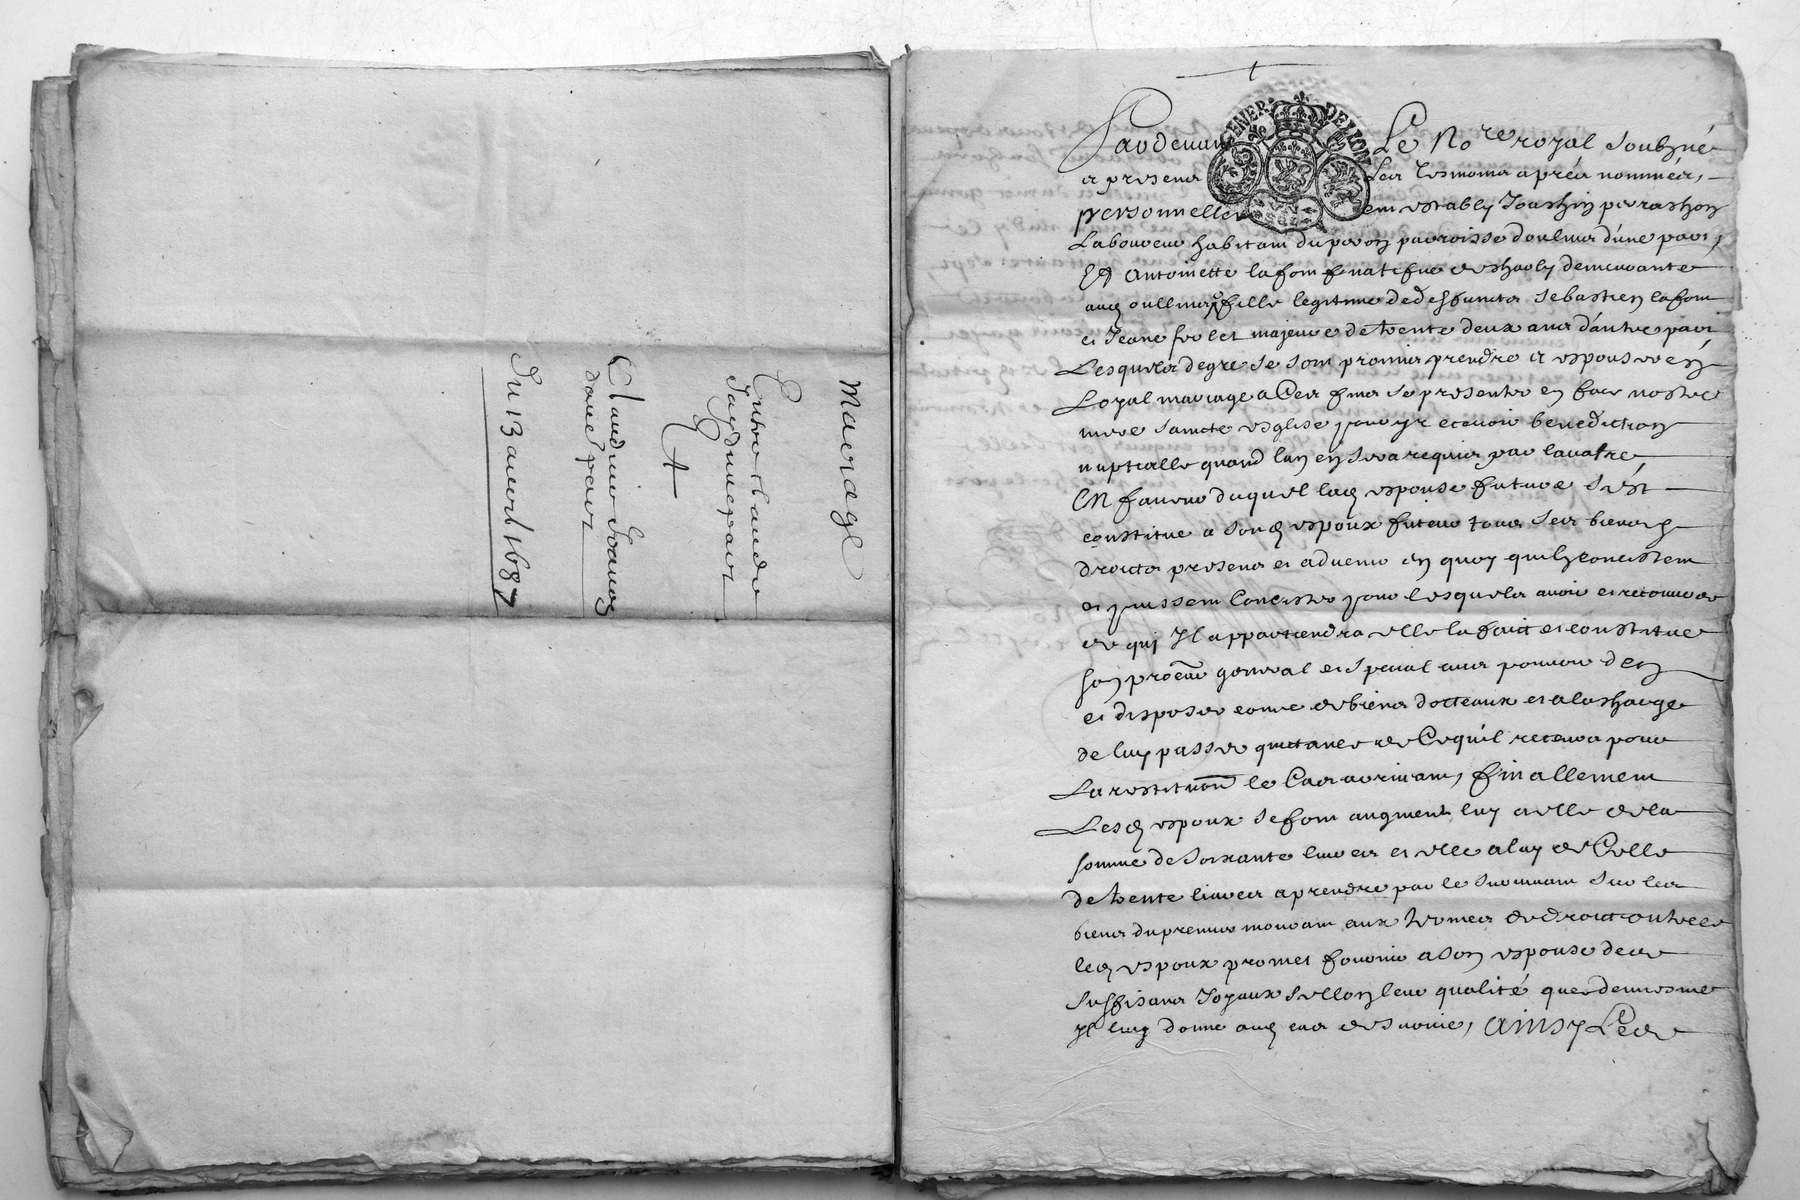 Mariage
Entre Claude
d'une part
Et
Claudine
d'autre part
Du 13 avril 1687
GENER DE LION
Pardevant Le No.re royal soubzné
et presens Les tesmoins aprés nommés,
personnellement estably
Laboureur habitant du paroisse doulins d'une part,
Et Antoinette lafont demeurante
aud oullins fille legitime de deffuncts Sebastien lafont
et Jeane majeure de trente deux ans d'autre part
Lesquels degre se sont promis prendre et espouser en
Loyal mariage a Ces fins se presenter en face nostre
mere saincte esglise pour y recevoir benediction
nuptialle quand lun en sera requis par lautre
En faveur duquel lad espouse future s'est
constitue a sond espoux futeur tous ses biens
droicts presens et advenir en quoy quils concistent
et puissent Concister pour lesquels avoir et recouvrer
de qui Il appartiendra elle la faict et constitue
son general et special avec pouvoir den
et disposer comme de biens dotteaux et a la charge
de luy passer quittance de Ce quil recevra pour
La restitution le Cas arrivant, finallement
Lesd espoux se sont augmente luy a elle de la
somme de soixante livres et elle a luy de Celle
de trente livres a prendre par le survivant sur les
biens du premier mourant aux termes de droict outre ce
led espoux promet fournir a son espouse des
suffisans Joyaux sellon leur qualité que
Il luy donne aud cas de survie, Ainsy